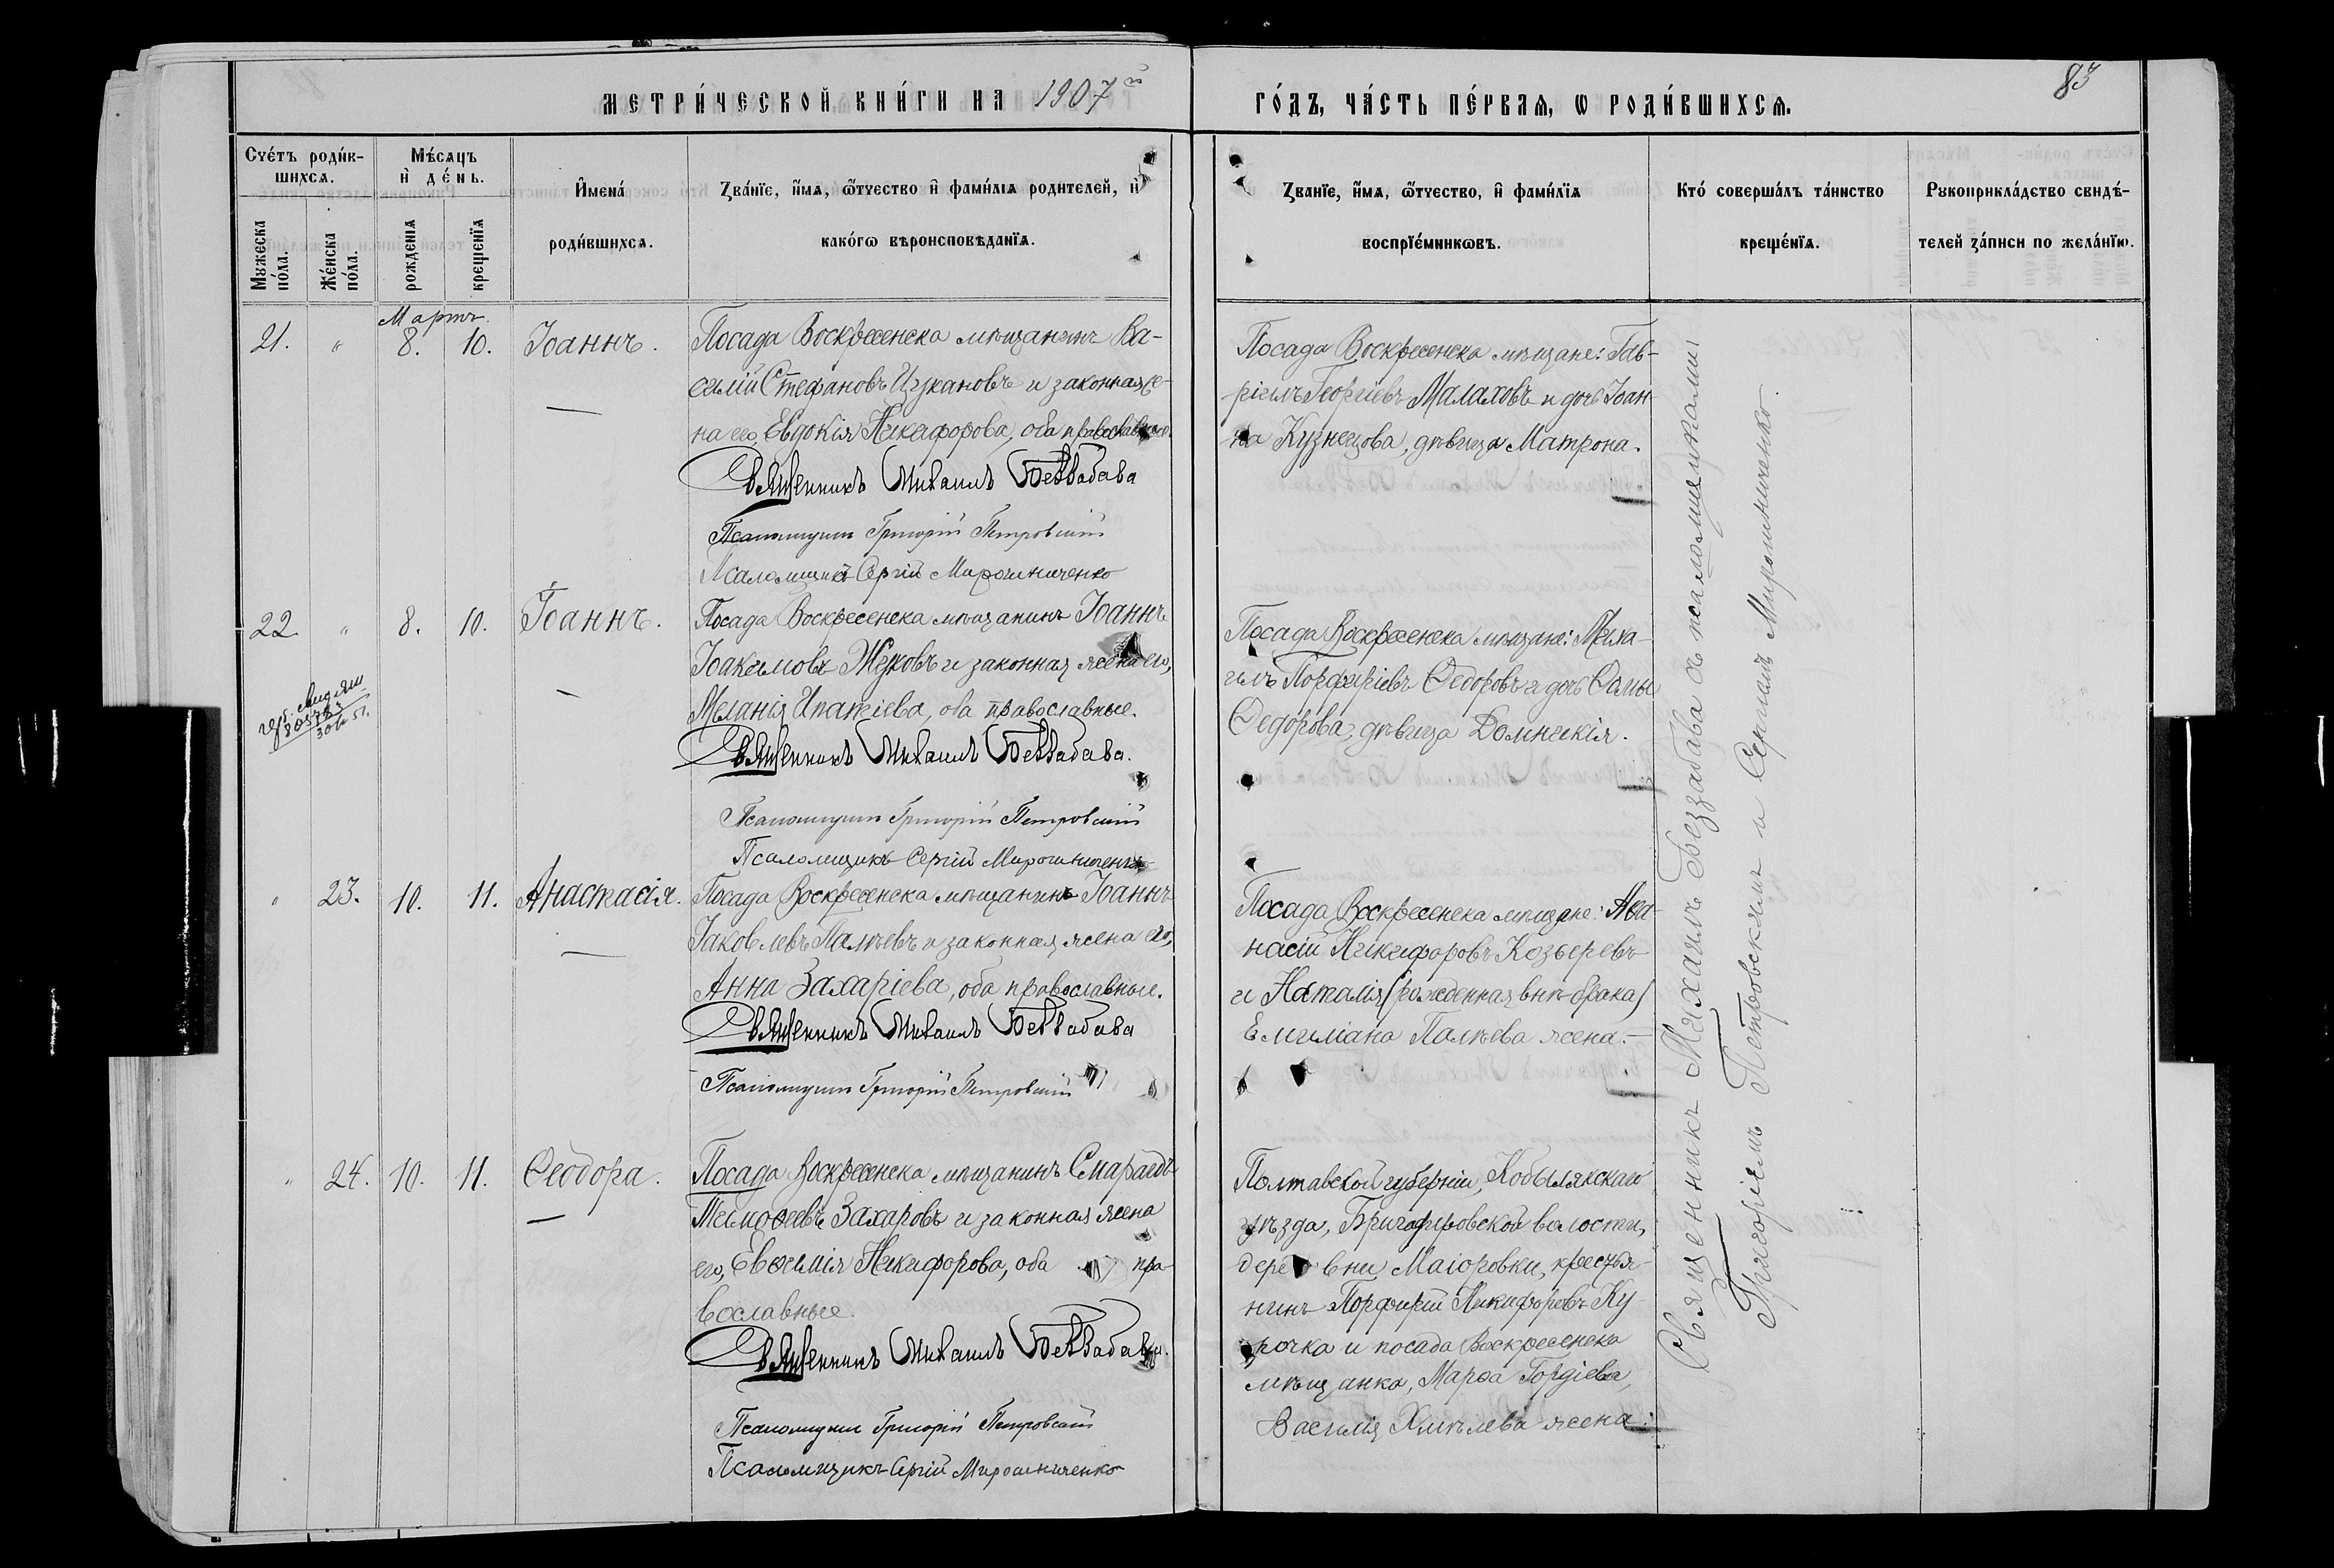 МЕТРИ́ЧЕСКОЙ КНИ́ГИ НА 1907й ГО́ДЪ, ЧА́СТЬ ПЕ́РВАѦ, Ѡ РОДИ́ВШИХСѦ.
83
Сче́тъ роди́в-
шихсѧ.
Мꙋжеска по́ла.
Же́нска по́ла.
Мѣ́сѧцъ
и҆ де́нь.
рожденїѧ
крещенїѧ
И҆мена́
роди́вшихсѧ.
Зва́нїе, и҆́мѧ, ѻ҆́тчество и҆ фами́лїѧ родителей, и҆
како́гѡ вѣроисповѣданїѧ.
Зва́нїе, и҆́мѧ, ѻ҆́тчество, и҆ фами́лїѧ
воспрїе́мникѡвъ.
Кто́ соверша́лъ та́инство
креще́нїѧ.
Рꙋкоприкла́дство свидѣ́-
телей за́писи по жела́нїю.
Мартъ.
21. " 8. 10. Іоаннъ.
Посада Воскресенска мѣщанинъ Ва-
силій Стефановъ Цукановъ и законная же-
на его, Евдокія Никифорова, оба православные.
Священникъ Михаилъ Беззабава
Псаломщикъ Григорій Петровскій
Псаломщикъ Сергій Мирошниченко
Посада Воскресенска мѣщане: Гав-
ріилъ Георгіевъ Малаховъ и дочь Іоан-
на Кузнецова, дѣвица Матрона.
22. " 8. 10. Іоаннъ.
30 51.
Посада Воскресенска мѣщанинъ Іоаннъ
Іоакимовъ Жуковъ и законная жена его,
Меланія Ипатіева, оба православные.
Священникъ Михаилъ Беззабава.
Псаломщикъ Григорій Петровскій
Псаломщикъ Сергій Мирошниченко
Посада Воскресенска мѣщане: Миха-
илъ Порфиріевъ Ѳедоровъ и дочь Ѳомы
Ѳедорова, дѣвица Домникія.
" 23. 10. 11. Анастасія.
Посада Воскресенска мѣщанинъ Іоаннъ
Іаковлевъ Палѣевъ и законная жена его,
Анна Захаріева, оба православные.
Священникъ Михаилъ Беззабава
Псаломщикъ Григорій Петровскій
Посада Воскресенска мѣщане: Аѳа-
насій Никифоровъ Козыревъ
и Наталія (рожденная внѣ брака)
Емиліана Палѣева жена.
" 24. 10. 11. Ѳеодора.
Посада Воскресенска мѣщанинъ Смарагдъ
Тимоѳеевъ Захаровъ и законная жена
его, Евѳимія Никифорова, оба пра-
вославные.
Священникъ Михаилъ Беззабава.
Псаломщикъ Григорій Петровскій
Псаломщикъ Сергій Мирошниченко
Полтавской губерніи, Кобылякскаго
уѣзда, Бригадировской волости,
деревни Маіоровки, крестья-
нинъ Порфирій Никифоровъ Ку-
рочка и посада Воскресенска
мѣщанка, Марѳа Гордіева,
Василія Хмѣлева жена.
Священникъ Михаилъ Беззабава съ псаломщиками:
Григоріемъ Петровскимъ и Сергіемъ Мирошниченко.